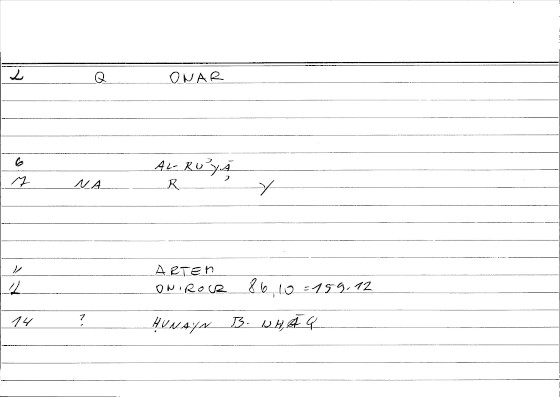 L Q ONAR
6 AL-RU'YĀ
7 NA R ' Y
11 ARTEM
12 ONIROCR 86,10 = 159.12
14 ? ḤUNAYN B.